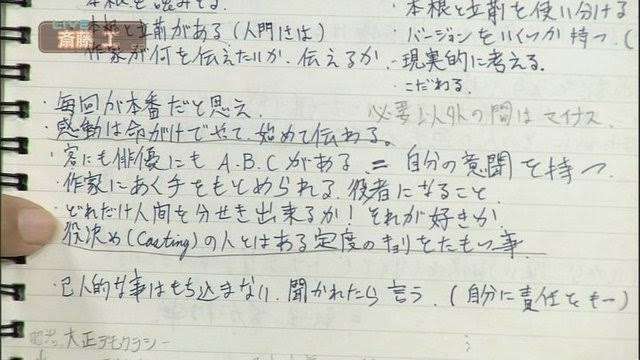 本根を読みする
・本根と立前を使い分ける
斎藤 工
・本根と立前がある(人間には)
・バージョンをいくつか持つ。(
作家が何を伝えたいか、伝えるか
・現実的に考える。
こだわる。
・毎回が本番だと思え。
必要以外の間はマイナス
・感動は命がけでやって、始めて伝わる。
・客にも俳優にもA.B.Cがある = 自分の意聞を持つ
・作家にあく手をもとめられる役者になること
・どれだけ人間を分せき出来るか!それが好きか
役決め(Casting)の人とはある定度のキョリをたもつ事
・己人的な事はもち込まない。聞かれたら言う。(自分に責任をもー)
大正デモクラシー